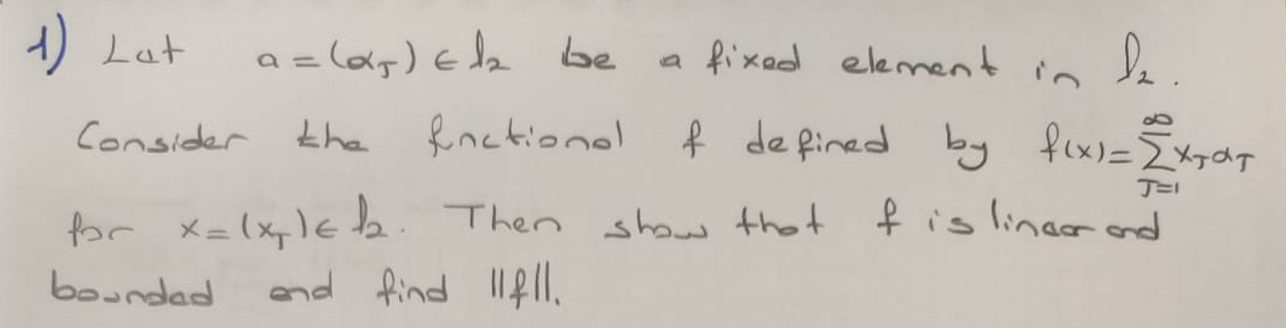 1) Let a = (αⱼ) ∈ l₂ be a fixed element in l₂.
Consider the fnctional f defined by f(x) = ∑_{J=1}^{∞} xⱼαⱼ
for x = (xⱼ) ∈ l₂. Then show that f is linear and
bounded and find ||f||.